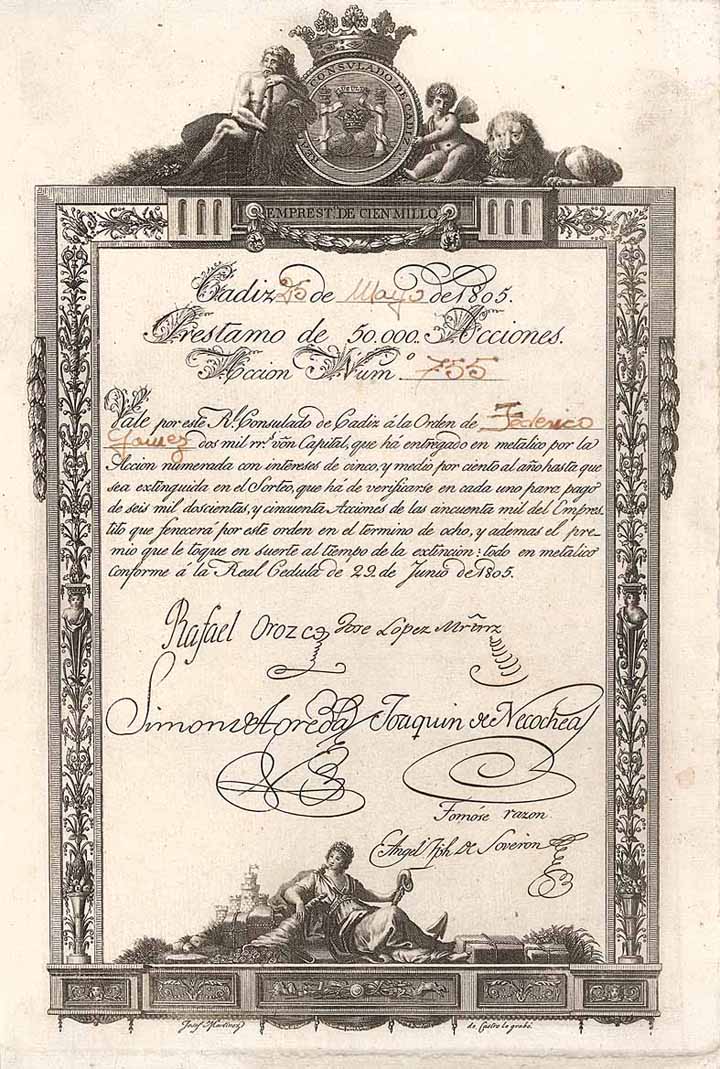 REAL CONSVLADO DE CADIZ
EMPREST.º DE CIEN MILLO.
Cadiz 25 de Mayo de 1805.
Prestamo de 50.000. Acciones.
Accion Num.º 755
Vale por este R.l Consulado de Cadiz á la Orden de Federico
Gomez dos mil rr.s von Capital, que há entregado en metalico por la
Accion numerada con intereses de cinco, y medio por ciento al año hasta que
sea extinguida en el Sorteo, que há de verificarse en cada uno para pago
de seis mil doscientas, y cincuenta Acciones de las cincuenta mil del Empres-
tito que fenecerá por este orden en el termino de ocho, y ademas el pre-
mio que le toque en suerte al tiempo de la extincion: todo en metalico
conforme á la Real Cedula de 29. de Junio de 1805.
Rafael Orozco Jose Lopez
Simon de Agreda Joaquin de Necochea
Tomóse razon.
Angel Jph de Soveron
Josef Martinez de Castro lo grabó.